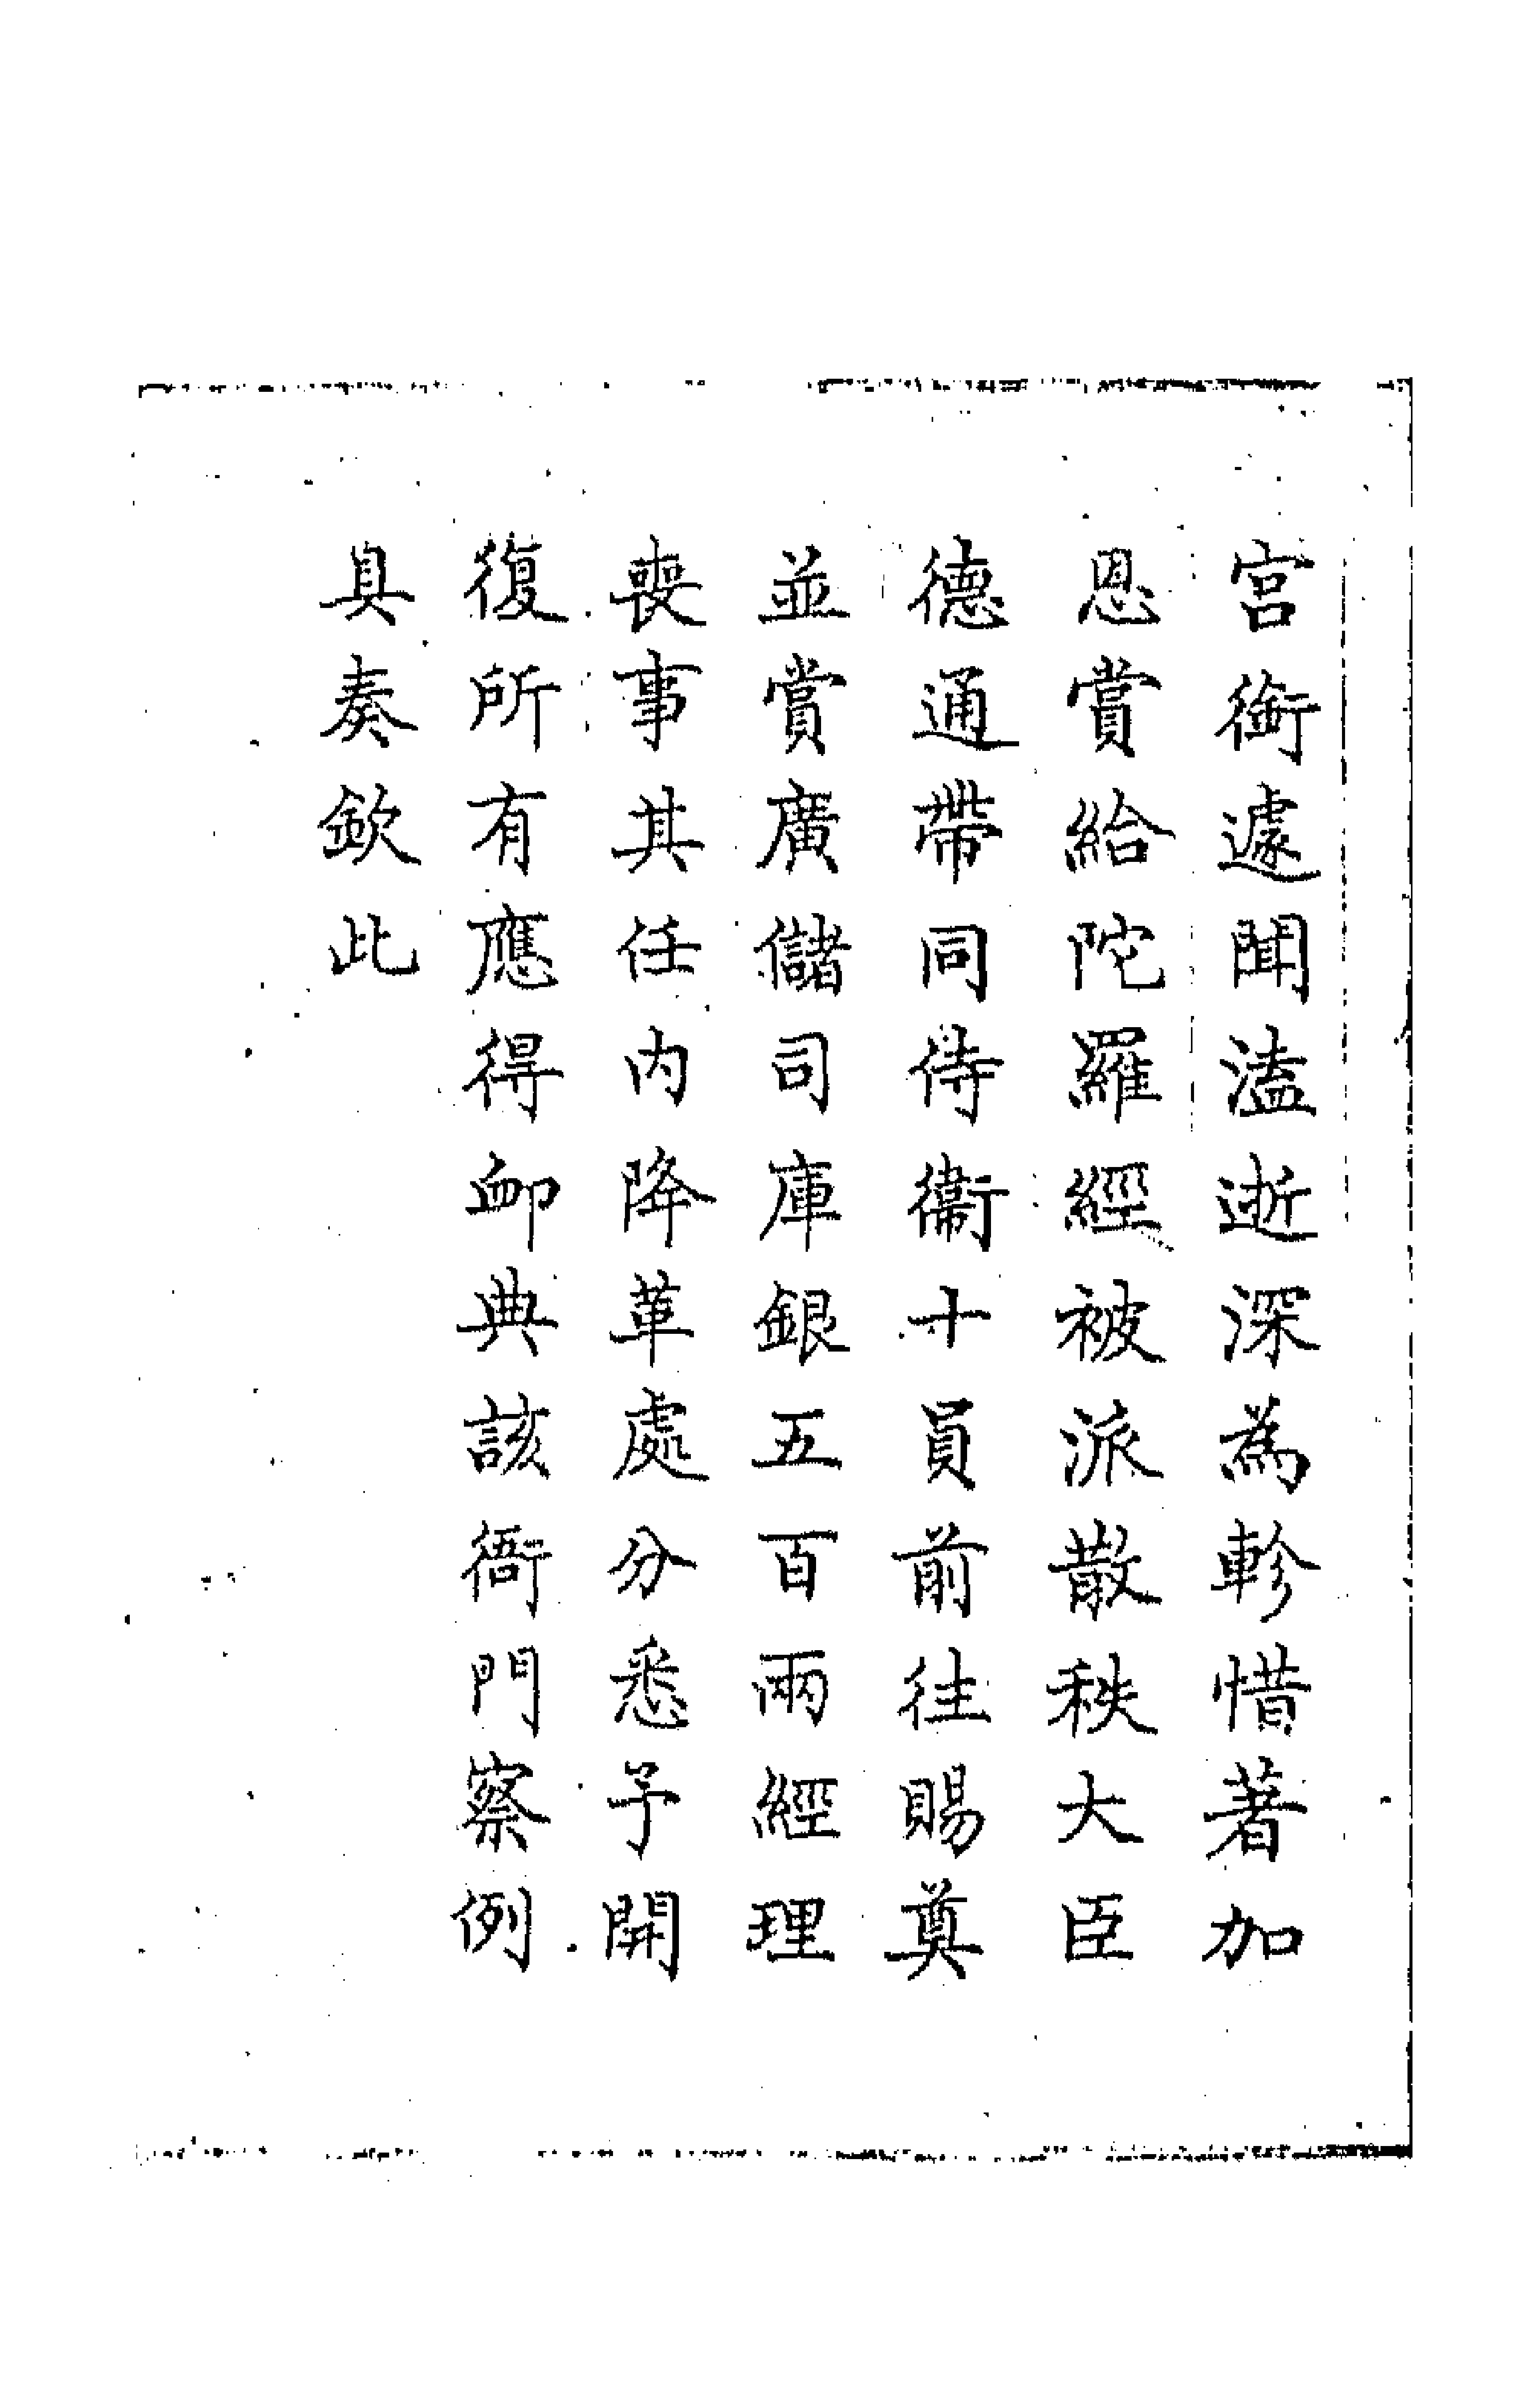 宫銜遽聞溘逝深為軫惜著加
恩賞給陀羅經被派散秩大臣
德通帶同侍衞十員前往賜奠
並賞廣儲司庫銀五百兩經理
喪事其任内降革處分悉予開
復所有應得卹典該衙門察例
具奏欽此